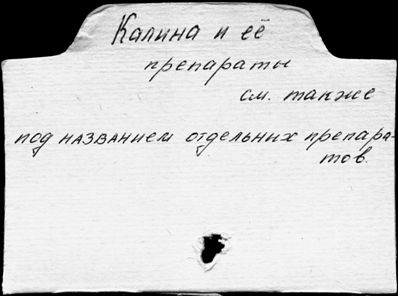 Калина и её
препараты
см. также
под названием отдельных препара-
тов.